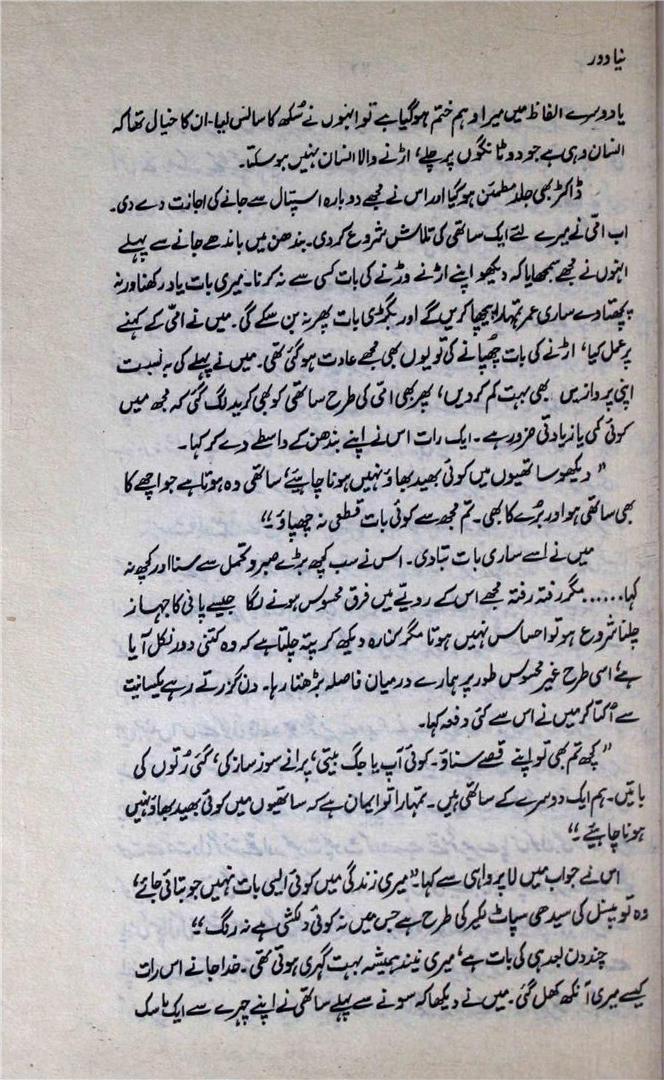 نیا دور
یا دوسرے الفاظ میں میرا وہم ختم ہوگیا ہے تو انہوں نے سُکھ کا سانس لیا۔ ان کا خیال تھا کہ
انسان وہی ہے جو دو ٹانگوں پر چلے، اڑنے والا انسان نہیں ہو سکتا۔
ڈاکٹر بھی جلد مطمئن ہوگیا اور اس نے مجھے دوبارہ اسپتال سے جانے کی اجازت دے دی۔
اب امّی نے میرے لئے ایک ساتھی کی تلاش شروع کر دی۔ بندھن میں باندھے جانے سے پہلے
انہوں نے مجھے سمجھایا کہ دیکھو اپنے اڑنے وڑنے کی بات کسی سے نہ کرنا۔ میری بات یاد رکھنا ورنہ
پچھتاوے ساری عمر تمہارا پیچھا کریں گے اور بگڑی بات پھر نہ بن سکے گی۔ میں نے امّی کے کہنے
پر عمل کیا، اڑنے کی بات چھپانے کی تو یوں بھی مجھے عادت ہوگئی تھی۔ میں نے پہلے کی بہ نسبت
اپنی پروازیں بھی بہت کم کر دیں، پھر بھی امّی کی طرح ساتھی کو بھی کرید لگ گئی کہ مجھ میں
کوئی کمی یا زیادتی ضرور ہے۔ ایک رات اس نے اپنے بندھن کے واسطے دے کر کہا۔
”دیکھو ساتھیوں میں کوئی بھید بھاؤ نہیں ہونا چاہیئے، ساتھی وہ ہوتا ہے جو اچھے کا
بھی ساتھی ہو اور بُرے کا بھی۔ تم مجھ سے کوئی بات قطعی نہ چھپاؤ“
میں نے اسے ساری بات بتا دی۔ اس نے سب کچھ بڑے صبر و تحمل سے سنا اور کچھ نہ
کہا...... مگر رفتہ رفتہ مجھے اس کے رویّے میں فرق محسوس ہونے لگا جیسے پانی کا جہاز
چلنا شروع ہو تو احساس نہیں ہوتا مگر کنارہ دیکھ کر پتہ چلتا ہے کہ وہ کتنی دور نکل آیا
ہے، اسی طرح غیر محسوس طور پر ہمارے درمیان فاصلہ بڑھتا رہا۔ دن گزرتے رہے یکسانیت
سے اُکتا کر میں نے اس سے کئی دفعہ کہا۔
”کچھ تم بھی تو اپنے قصے سناؤ۔ کوئی آپ یا جگ بیتی، پرانے سوز ساز کی، گئی رُتوں کی
باتیں۔ ہم ایک دوسرے کے ساتھی ہیں۔ تمہارا تو ایمان ہے کہ ساتھیوں میں کوئی بھید بھاؤ نہیں
ہونا چاہیئے“
اس نے جواب میں لاپرواہی سے کہا۔ ”میری زندگی میں کوئی ایسی بات نہیں جو بتائی جائے،
وہ تو پنسل کی سیدھی سپاٹ لکیر کی طرح ہے جس میں نہ کوئی دلکشی ہے نہ رنگ“
چند دن بعد ہی کی بات ہے، میری نیند ہمیشہ بہت گہری ہوتی تھی۔ خدا جانے اس رات
کیسے میری آنکھ کھل گئی۔ میں نے دیکھا کہ سونے سے پہلے ساتھی نے اپنے چہرے سے ایک ماسک